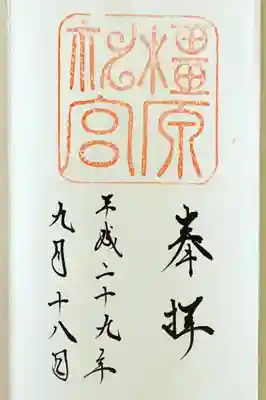 橿原神宮
奉拝
平成二十九年
九月十八日